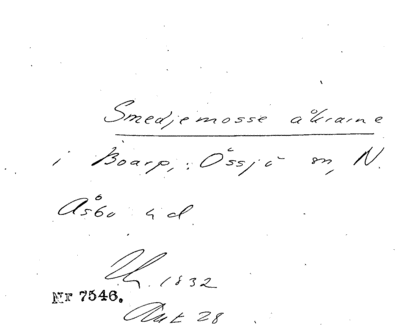 Smedjemosse åkrarne
i Boarp, Össjö sn, N.
Åsbo hd.
1832
Nr 7546.
Akt 28